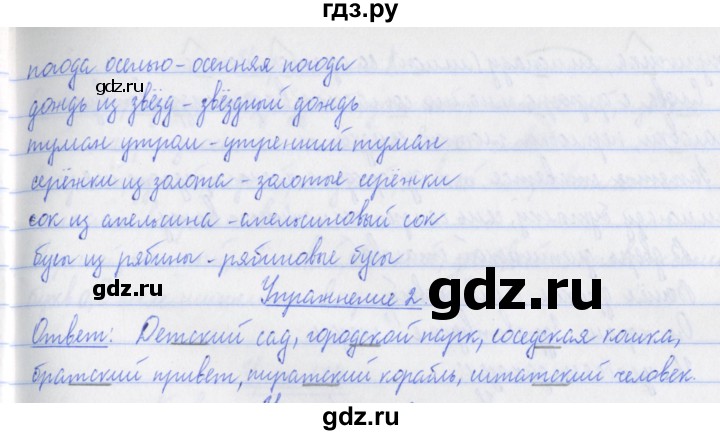 гдз.ру
погода осенью - осенняя погода
дождь из звёзд - звёздный дождь
туман утром - утренний туман
серёжки из золота - золотые серёжки
сок из апельсина - апельсиновый сок
бусы из рябины - рябиновые бусы
Упражнение 2.
Ответ: Детский сад, городской парк, соседская кошка,
братский привет, пиратский корабль, штатский человек.
gdz.ru
gdz.ru
gdz.ru
gdz.ru
gdz.ru